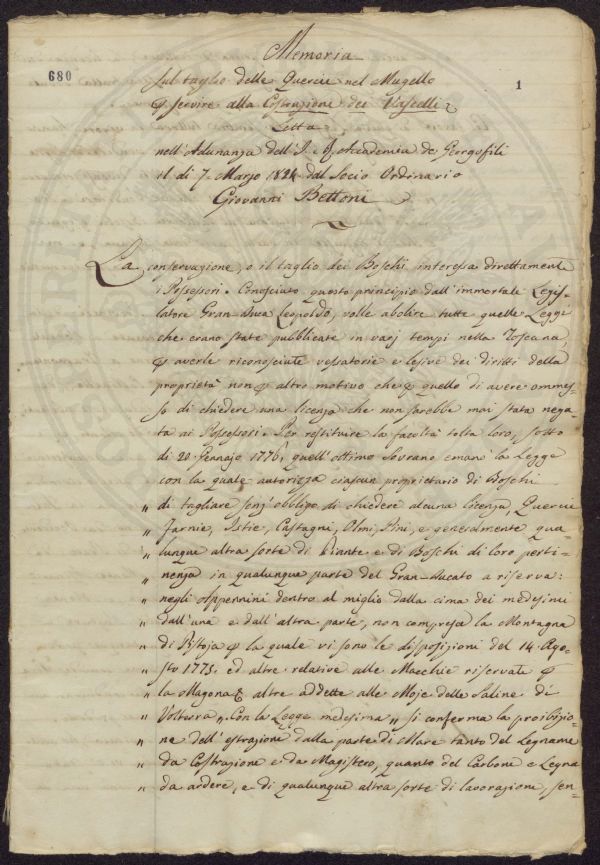 Memoria
680
sul taglio delle Quercie nel Mugello
1
p servire alla Costruzione dei Vascelli
Letta
nell'Adunanza dell'I. R. Accademia de Georgofili
il di 7. Marzo 1824 dal Socio Ordinario
Giovanni Bettoni
La conservazione, o il taglio dei Boschi interessa direttamente
i Possessori. Conosciuto questo principio dall'immortale Legis-
latore Gran-Duca Leopoldo, volle abolire tutte quelle Leggi
che erano state pubblicate in varj tempi nella Toscana,
p averle riconosciute vessatorie e lesive dei diritti della
proprietà non p altro motivo che p quello di avere ommes-
so di chiedere una licenza che non sarebbe mai stata nega-
ta ai Possessori. Per restituire la facoltà tolta loro, sotto
di 20 Gennajo 1776, quell'ottimo Sovrano emanò la Legge
con la quale autorizza ciascun proprietario di Boschi
„ di tagliare senz'obbligo di chiedere alcuna licenza, Quercie
„ Farnie, Istie, Castagni, Olmi, Pini, e generalmente qua-
„ lunque altra sorte di Piante e di Boschi di loro perti-
„ nenza in qualunque parte del Gran-Ducato a riserva:
„ negli Appennini dentro al miglio dalla cima dei medesimi
„ dall'una e dall'altra parte, non compresa la Montagna
„ di Pistoja p la quale vi sono le disposizioni del 14. Ago-
„ sto 1775. ed altre relative alle Macchie riservate p
„ la Magona & altre addette alle Moje delle Saline di
„ Volterra „. Con la Legge medesima „ si conferma la proibizio-
„ ne dell'estrazione dalla parte di Mare tanto del Legname
„ da Costruzione e da Magistero, quanto del Carbone e Legna
„ da ardere, e di qualunque altra sorte di lavorazione, sen-